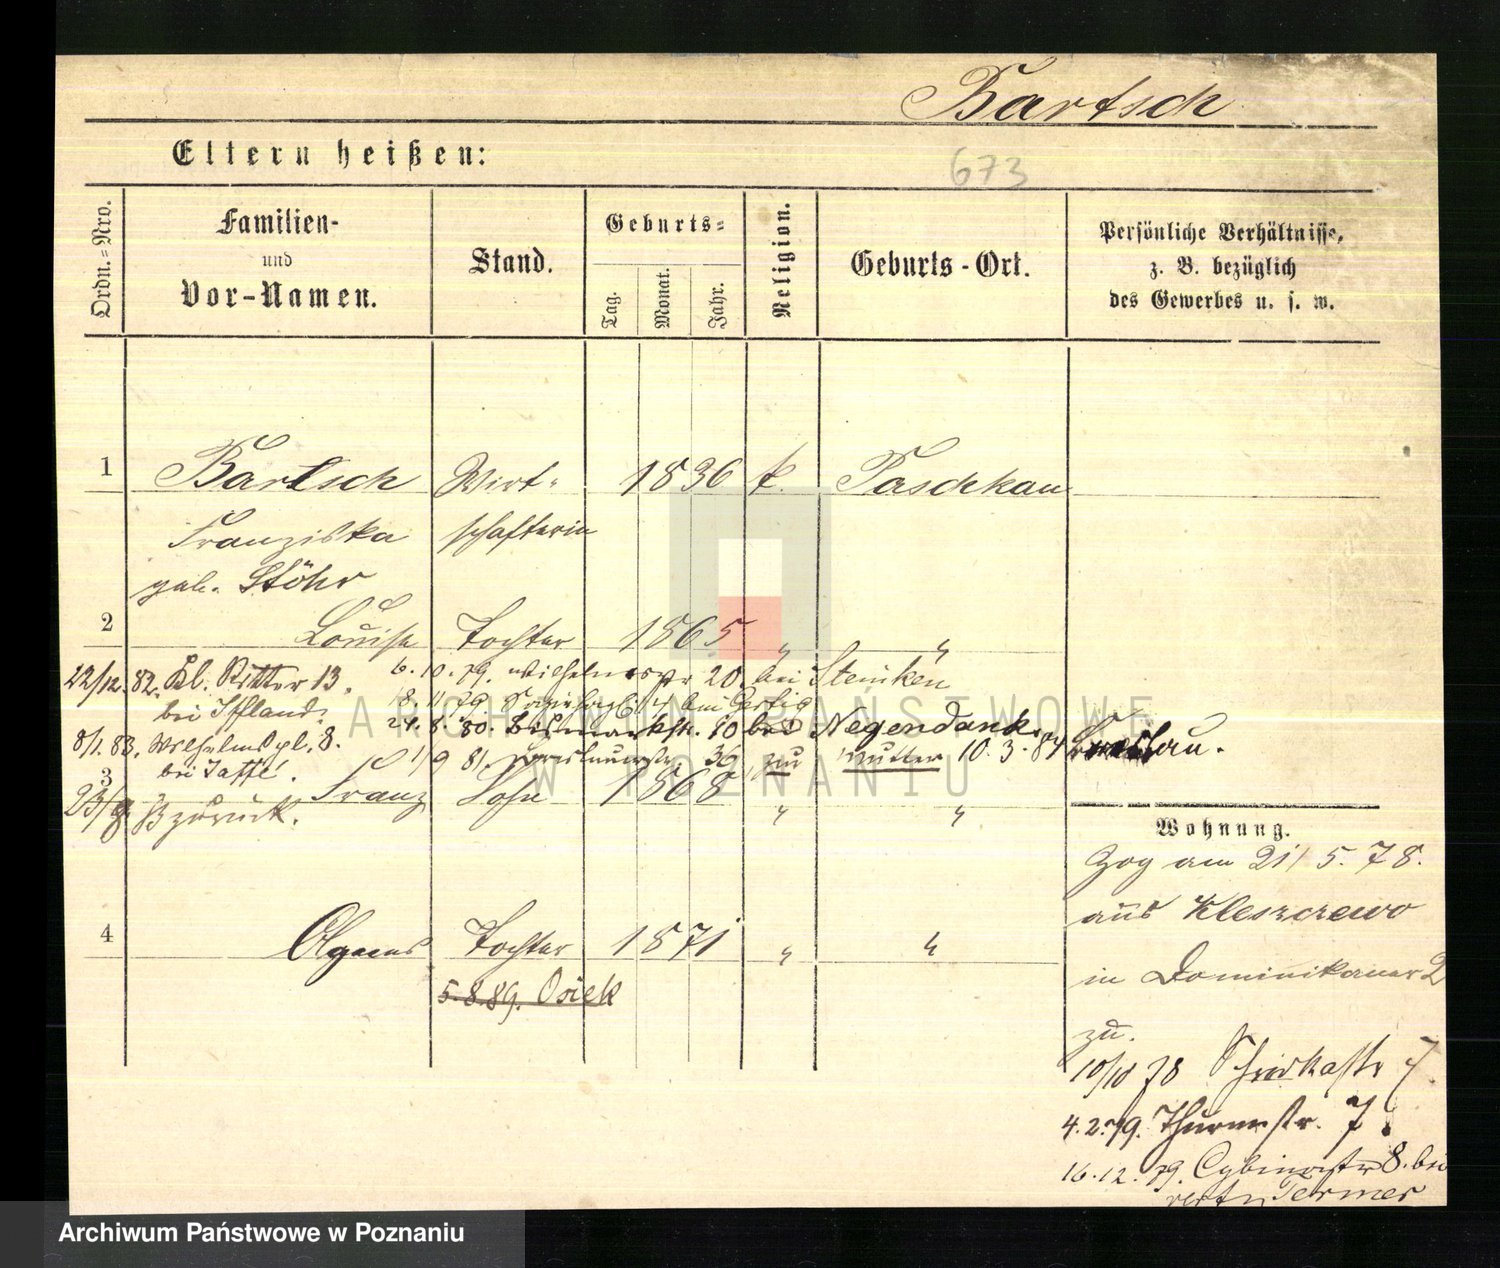 Bartsch
Eltern heißen:
673
Ordn.-Nro.
Familien-
und
Vor-Namen.
Stand.
Geburts-
Tag.
Monat.
Jahr.
Religion.
Geburts-Ort.
Persönliche Verhältnisse,
z. B. bezüglich
des Gewerbes u. s. w.
1 Bartsch Wirt- 1836 k. Paschkau
Franziska schafterin
geb. Stöhr
2 Louise Tochter 1865 " "
22/12. 82. Kl. Ritter 13.
bei Iffland.
8/1. 83. Wilhelmspl. 8.
bei Jaffé.
6. 10. 79. Wilhelmstr 20. bei Steinken
18. 11. 79 14 bei
24. 8. 80. Bismarckstr. 10 bei Negendank.
1/9 81. Breslauerstr. 36 zu Mutter 10. 3. 84 Breslau.
3 Franz Sohn 1868 " "
23/9. 83 zurück.
4 Agnes Tochter 1871 " "
5. 8. 89. Osiek
Wohnung.
Zog am 21/5. 78.
aus Kleszczewo
in Dominikaner 2
zu.
10/10 78 7.
4. 2. 79. Thurmstr. 7.
16. 12. 79. Cybinastr 8. bei
Termer
ARCHIWUM PAŃSTWOWE
W POZNANIU
Archiwum Państwowe w Poznaniu